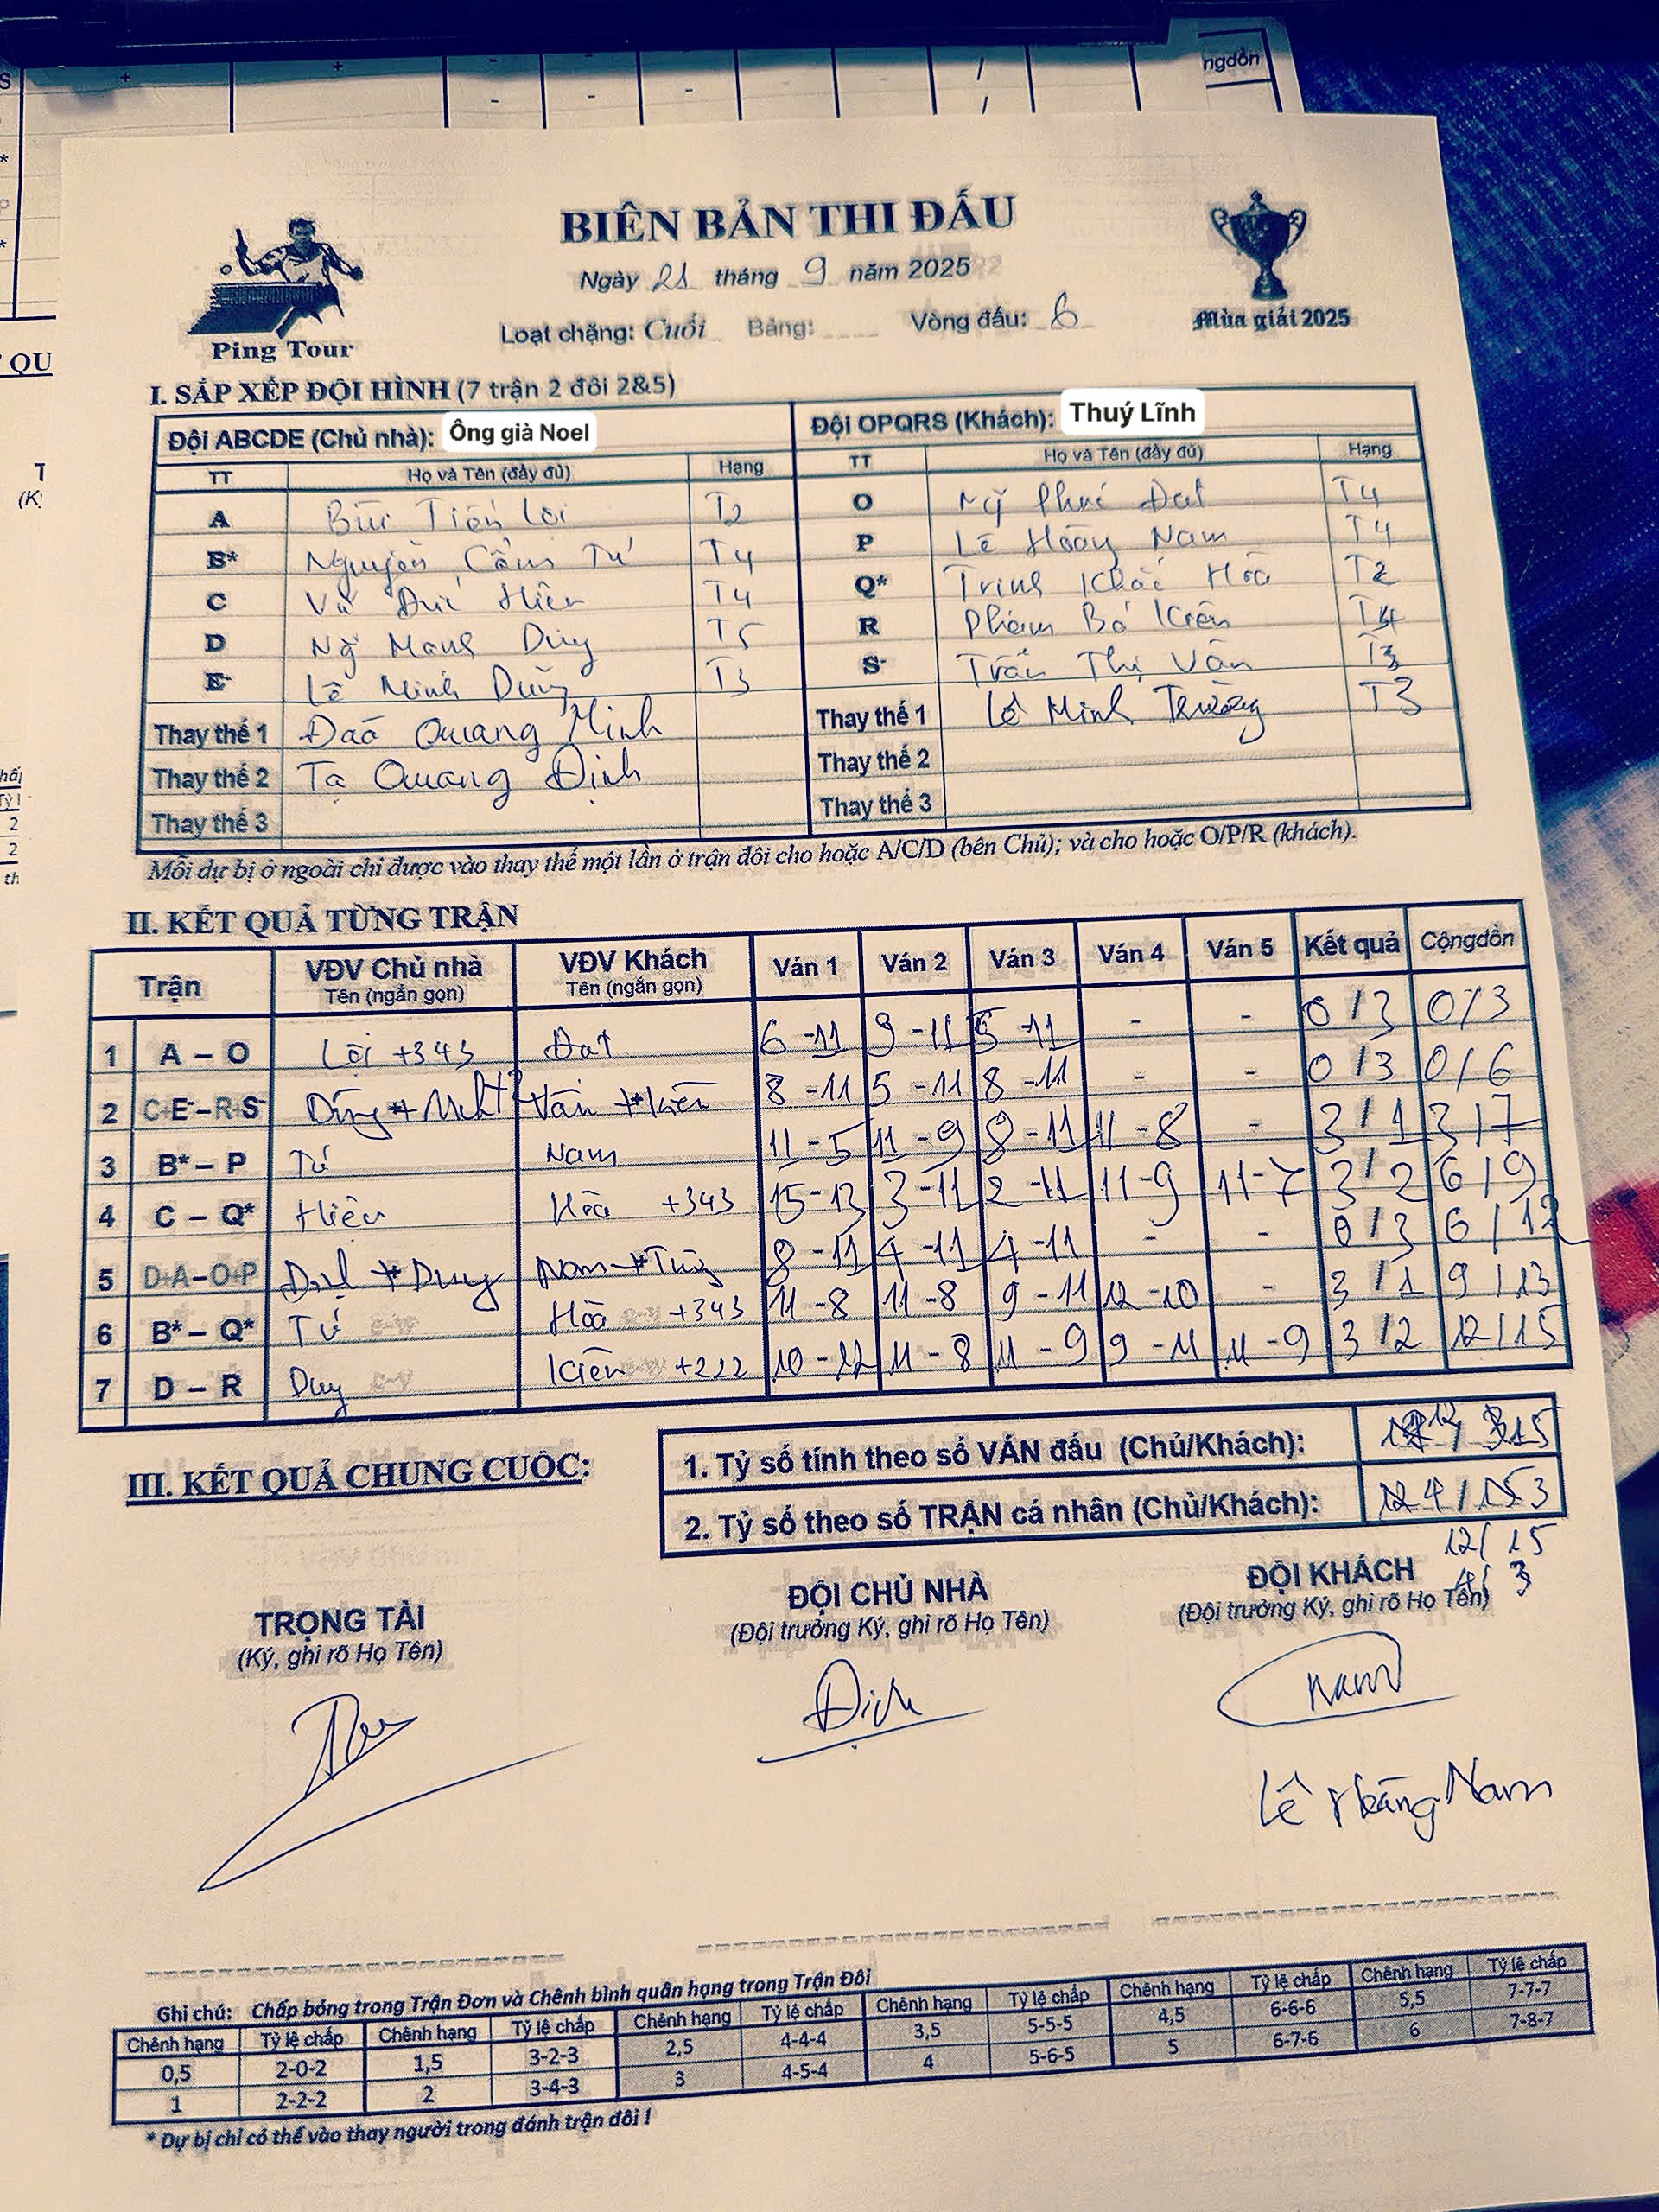 ngdồn
BIÊN BẢN THI ĐẤU
Ngày 21 tháng 9 năm 2025
Loạt chặng: Cuối Bảng: Vòng đấu: 6
Ping Tour
Mùa giải 2025
I. SẮP XẾP ĐỘI HÌNH (7 trận 2 đôi 2&5)
Đội ABCDE (Chủ nhà): Ông già Noel Đội OPQRS (Khách): Thuý Lĩnh
TT Họ và Tên (đầy đủ) Hạng TT Họ và Tên (đầy đủ) Hạng
A Bùi Tiến Lợi T2 O Ng̃ Phúc Đạt T4
B* Nguyễn Cẩm Tú T4 P Lê Hoàng Nam T4
C Vũ Đức Hiên T4 Q* Trịnh Khắc Hòa T2
D Ng̃ Mạnh Duy T5 R Phạm Bá Kiên T4
E- Lê Minh Dũng T3 S- Trần Thị Vân T3
Thay thế 1 Đào Quang Minh Thay thế 1 Lê Minh Trường T3
Thay thế 2 Tạ Quang Định Thay thế 2
Thay thế 3 Thay thế 3
Mỗi dự bị ở ngoài chỉ được vào thay thế một lần ở trận đôi cho hoặc A/C/D (bên Chủ); và cho hoặc O/P/R (khách).
II. KẾT QUẢ TỪNG TRẬN
Trận VĐV Chủ nhà VĐV Khách Ván 1 Ván 2 Ván 3 Ván 4 Ván 5 Kết quả Cộngdồn
Tên (ngắn gọn) Tên (ngắn gọn)
1 A – O Lợi +343 Đạt 6 - 11 9 - 11 5 - 11 - - 0 / 3 0 / 3
2 C+E-–R+S- Dũng + Vân + Kiên 8 - 11 5 - 11 8 - 11 - - 0 / 3 0 / 6
3 B* – P Tú Nam 11 - 5 11 - 9 8 - 11 11 - 8 - 3 / 1 3 / 7
4 C – Q* Hiên Hòa +343 15 - 13 3 - 11 2 - 11 11 - 9 11 - 7 3 / 2 6 / 9
5 D+A–O+P + Duy Nam + 8 - 11 4 - 11 4 - 11 - - 0 / 3 6 / 12
6 B* – Q* Tú Hòa +343 11 - 8 11 - 8 9 - 11 12 - 10 - 3 / 1 9 / 13
7 D – R Duy Kiên +222 10 - 12 11 - 8 11 - 9 9 - 11 11 - 9 3 / 2 12 / 15
III. KẾT QUẢ CHUNG CUỘC:
1. Tỷ số tính theo số VÁN đấu (Chủ/Khách):
2. Tỷ số theo số TRẬN cá nhân (Chủ/Khách): 4 / 3
12 / 15
4 / 3
TRỌNG TÀI
(Ký, ghi rõ Họ Tên)
ĐỘI CHỦ NHÀ
(Đội trưởng Ký, ghi rõ Họ Tên)
Định
ĐỘI KHÁCH
(Đội trưởng Ký, ghi rõ Họ Tên)
Nam
Lê Hoàng Nam
Ghi chú: Chấp bóng trong Trận Đơn và Chênh bình quân hạng trong Trận Đôi
Chênh hạng Tỷ lệ chấp Chênh hạng Tỷ lệ chấp Chênh hạng Tỷ lệ chấp Chênh hạng Tỷ lệ chấp Chênh hạng Tỷ lệ chấp Chênh hạng Tỷ lệ chấp
0,5 2-0-2 1,5 3-2-3 2,5 4-4-4 3,5 5-5-5 4,5 6-6-6 5,5 7-7-7
1 2-2-2 2 3-4-3 3 4-5-4 4 5-6-5 5 6-7-6 6 7-8-7
* Dự bị chỉ có thể vào thay người trong đánh trận đôi !